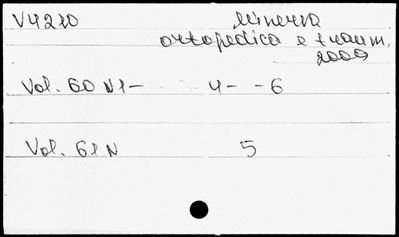 V4210 Minerva
ortopedica e traum.
2009
Vol. 60 N1- 4 - -6
Vol. 61 N 5